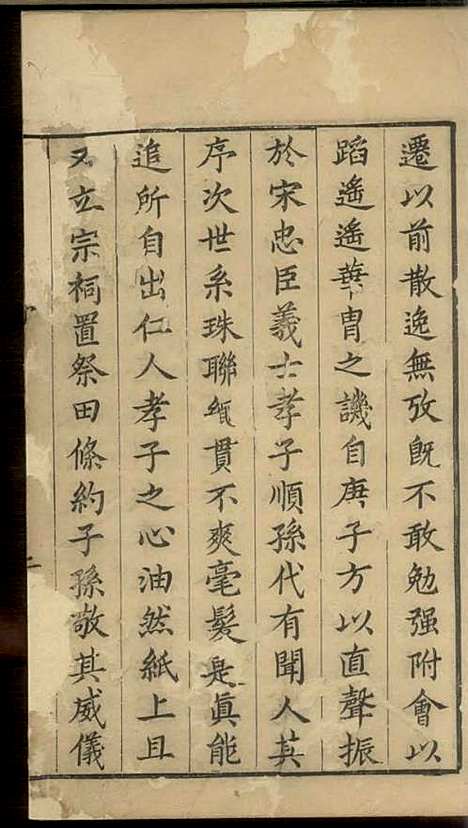 遷以前散逸無攷既不敢勉强附會以
蹈遙遙華胄之譏自庚子方以直聲振
於宋忠臣義士孝子順孫代有聞人其
序次世系珠聯絙貫不爽毫髮是眞能
追所自出仁人孝子之心油然紙上且
又立宗祠置祭田條約子孫敬其威儀
二